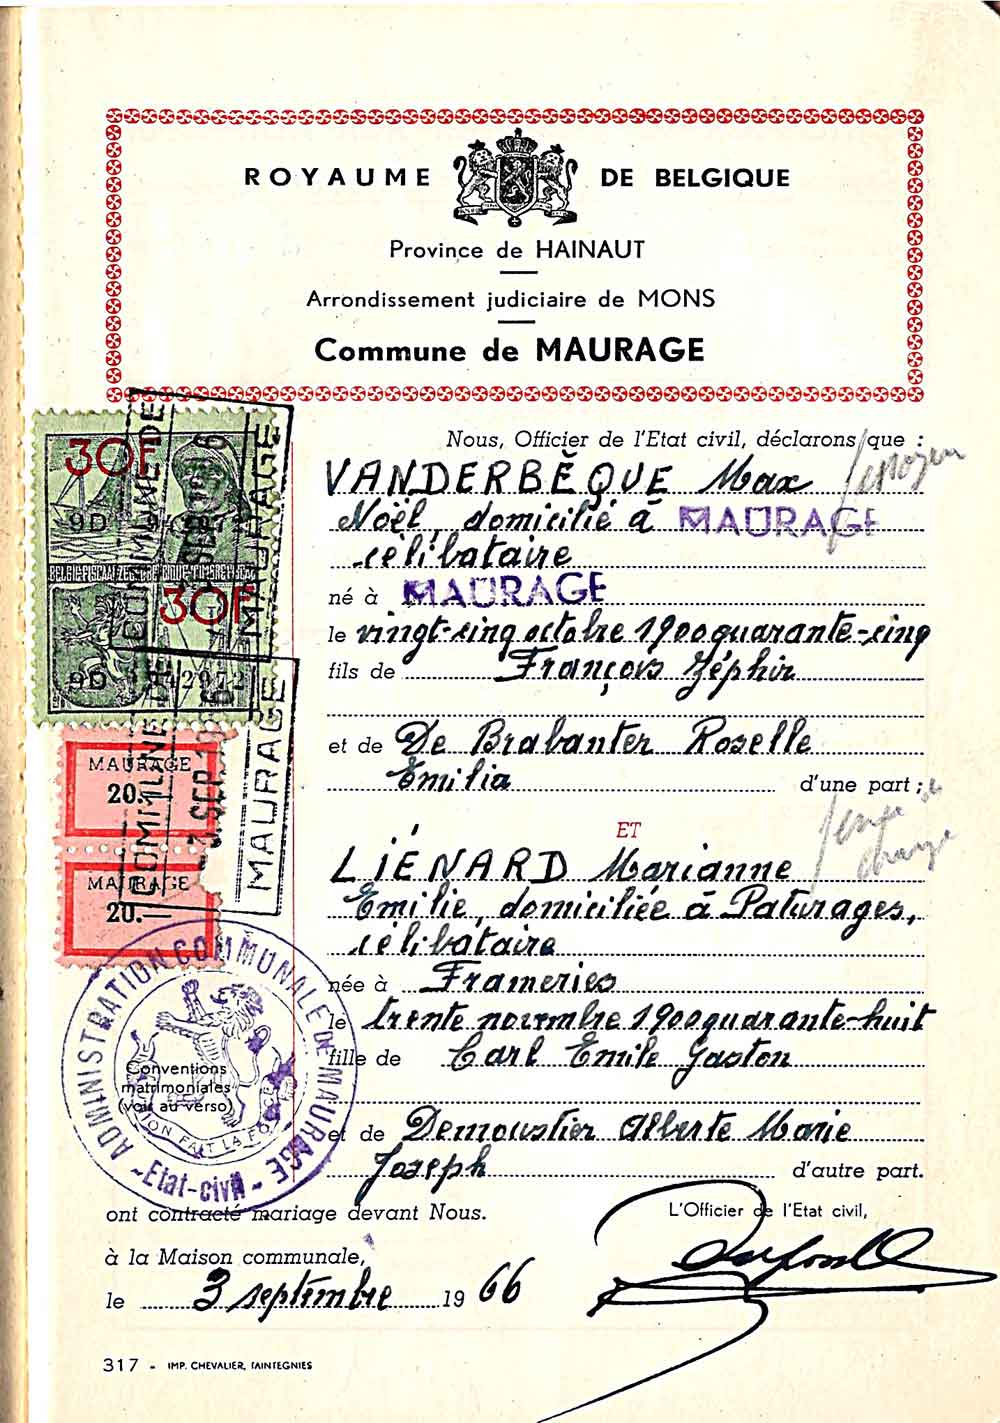 ROYAUME DE BELGIQUE
Province de HAINAUT
Arrondissement judiciaire de MONS
Commune de MAURAGE
Nous, Officier de l'Etat civil, déclarons que :
VANDERBÈQUE Max
Noël, domicilié à MAURAGE
célibataire
né à MAURAGE
le vingt-cinq octobre 1900 quarante-cinq
fils de François Zéphir
et de De Brabanter Roselle
Emilia d'une part ;
ET
LIÉNARD Marianne
Emilie, domiciliée à Paturages,
célibataire
née à Frameries
le trente novembre 1900 quarante-huit
fille de Carl Emile Gaston
et de Demoustier Alberte Marie
Joseph d'autre part.
ont contracté mariage devant Nous.
L'Officier de l'Etat civil,
à la Maison communale,
le 3 septembre 1966
317 - IMP. CHEVALIER, TAINTEGNIES
30F
30F
COMMUNE DE MAURAGE
COMMUNE DE MAURAGE
3 SEP. 19
MAURAGE
20.—
MAURAGE
20.—
ADMINISTRATION COMMUNALE DE MAURAGE
-Etat-civil-
Conventions
matrimoniales
(voir au verso)